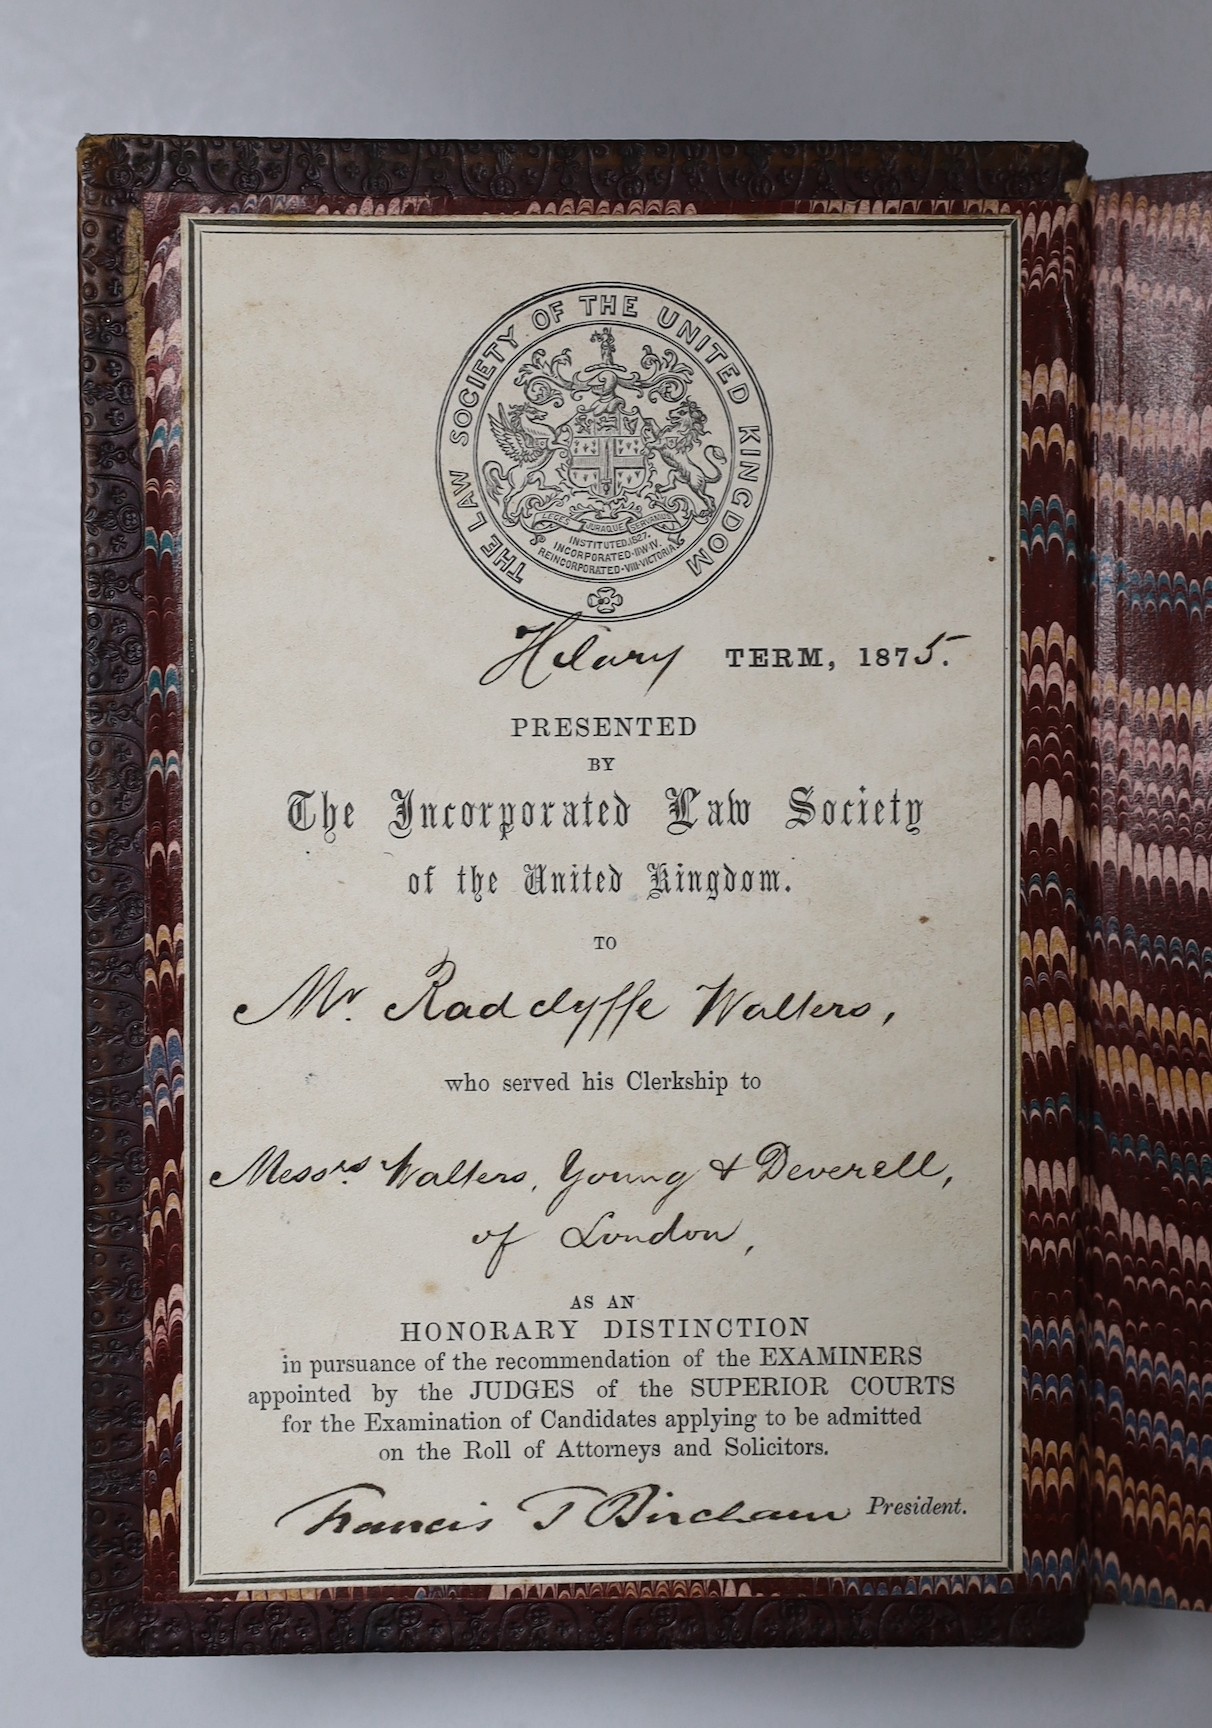 THE LAW SOCIETY OF THE UNITED KINGDOM
LEGES JURAQUE SERVAMUS
INSTITUTED.1827.
INCORPORATED·II·W·IV.
REINCORPORATED·VIII·VICTORIA.
Hilary TERM, 1875.
PRESENTED
BY
The Incorporated Law Society
of the United Kingdom.
TO
Mr. Radclyffe Walters,
who served his Clerkship to
Messrs. Walters, Young & Deverell,
of London,
AS AN
HONORARY DISTINCTION
in pursuance of the recommendation of the EXAMINERS
appointed by the JUDGES of the SUPERIOR COURTS
for the Examination of Candidates applying to be admitted
on the Roll of Attorneys and Solicitors.
Francis T Bircham President.